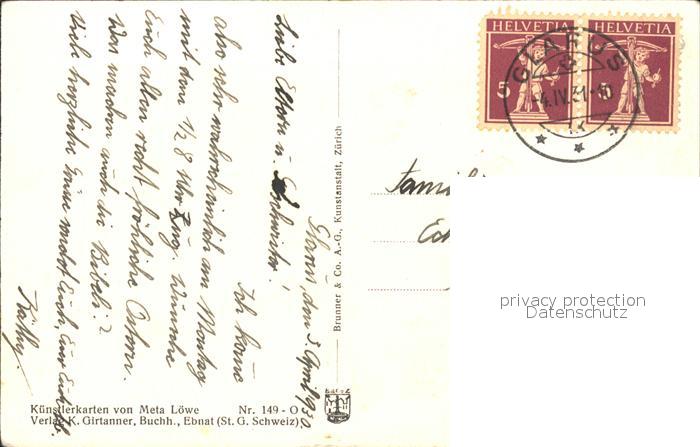 Glarus, den 3. April 1930
Liebe Eltern u. Geschwister!
Ich komme
also sehr wahrscheinlich am Montag
mit dem ½ 8 Uhr Zug. Wünsche
Euch allen recht fröhliche Ostern.
Was machen auch die Bibeli?
Viele herzliche Grüsse sendet Euch, Eure
Käthy.
Künstlerkarten von Meta Löwe Nr. 149 - O
Verlag K. Girtanner, Buchh., Ebnat (St. G. Schweiz)
Brunner & Co. A.-G., Kunstanstalt, Zürich
HELVETIA HELVETIA
5
GLARUS
-4.IV.31-10
Famil
privacy protection
Datenschutz